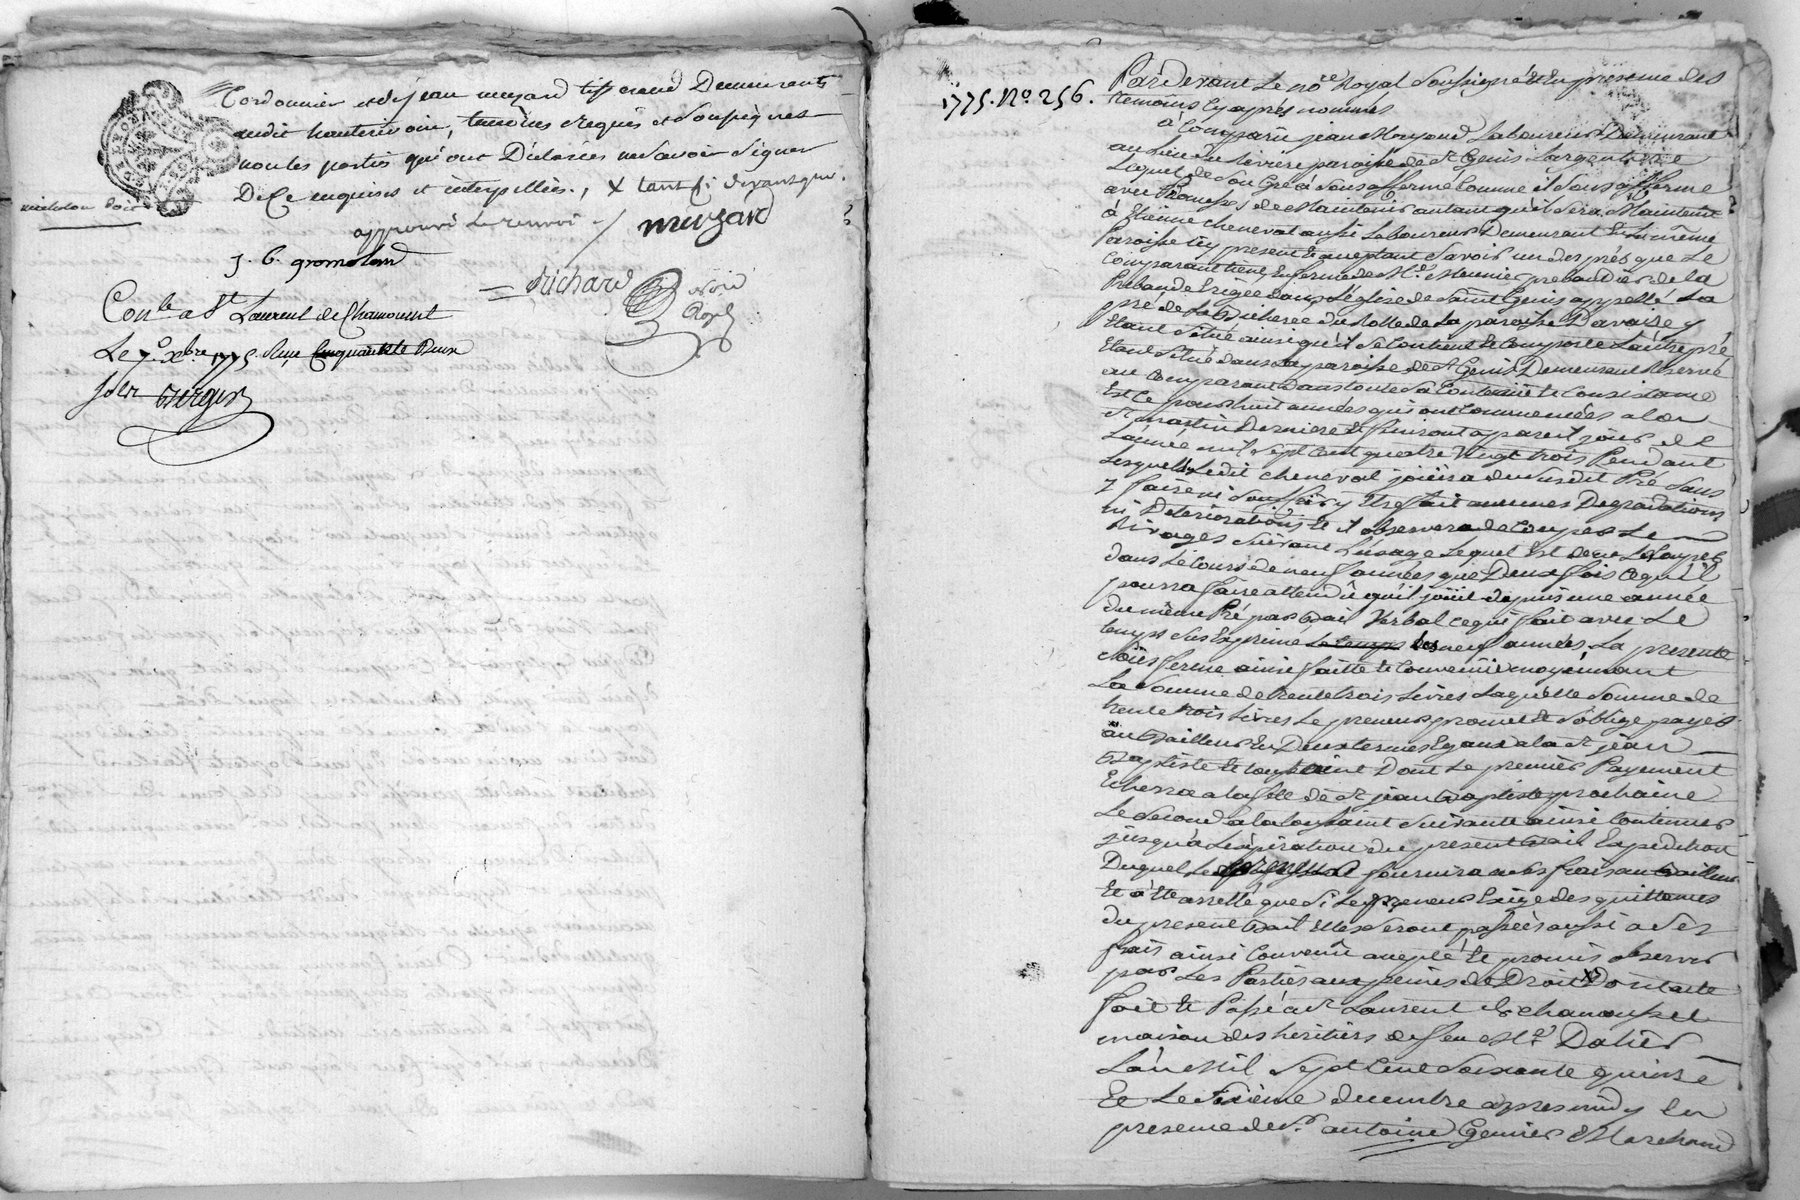 Cordonnier et de jean muzard tisserand Demeurants
audit hauterivoire, temoins requis et soussignés
non les parties qui ont Déclarées ne savoir signer
De Ce enquises et interpellées., x tant ci devant que.
nicholon doit
approuvé Le renvoi
muzard
J. B. gromolard
Richard
nore
Royal
Conlé a St Laurent de Chamousset
Le 7e Xbre 1775. Reçu Cinquante Deux
sols
1775. No. 256.
Pardevant Le nore Royal Soussigné Et En presence des
temoins Cy après nommés
à Comparû jean Laboureur Demeurant
au Lieu de paroisse de St Genis Largentiere
Lequel de Son Gré à Sousaffermé Comme il Sousafferme
avec Promesse de Maintenir autant qu'il Sera Maintenû
à Etienne cheneval aussi Laboureur Demeurant En La même
Paroisse Cy present Et acceptant Savoir un des prés que Le
Comparant tient En ferme de Mre Meunier prebandier de la
Prebande Erigée dans L'église de Saint Genis appellé La
pré de La du Rolle de La paroisse D'avaise y
Etant Situé ainsi qu'il Se Contient Et Comporte L'autre pré
Etant Situé dans La paroisse de St Genis Demeurant Reservé
au Comparant dans toute Sa Contenüe Et Consistance
Est Ce pour huit années qui ont Commencées a la
St martin Derniere Et finiront a pareil jour de
L'année mil Sept Cent quatre Vingt trois Pendant
Lesquelles Ledit cheneval joüira du Susdit Pré Sans
y faire ni Souffrir y Etre fait aucunes Degradations
ni Deteriorations Et il observera de Couper Le
Rivages Suivant L'usage Lequel Est de ne Le Couper
dans Le Cours de neuf années que Deux fois Ce qu'il
pourra faire attendû qu'il joüit depuis une année
du même Pré par Bail Verbal Ce qui fait avec Le
temps Sus Exprimé les neuf années La presente
Sous ferme ainsi faitte Et Convenüe moyennant
La Somme de trente trois Livres Laquelle Somme de
trente trois Livres Le preneur promet Et S'oblige payer
au Bailleur En Deux termes Egaux a la St jean
Baptiste Et toussaint Dont Le premier Payement
Echerra a la fête de St jean Baptiste prochaine
Le Second a la toussaint Suivante ainsi Continuer
jusqu'à L'expiration du present Bail Expedition
Duquel Le preneur fournira a ses frais au Bailleur
Et à Eté arretté que Si Le preneur Exige des quittances
du present Bail Elles Seront passées aussi a Ses
frais ainsi Convenû accepté Et promis observer
par Les Parties aux peines de Droit X Dont acte
fait Et Passé a St Laurent de chamousset
maison des héritiers de feu Mre Dalier
L'an Mil Sept Cent Soixante quinze
Et Le Sixieme decembre apres midy En
presence de Sr antoine Marchand